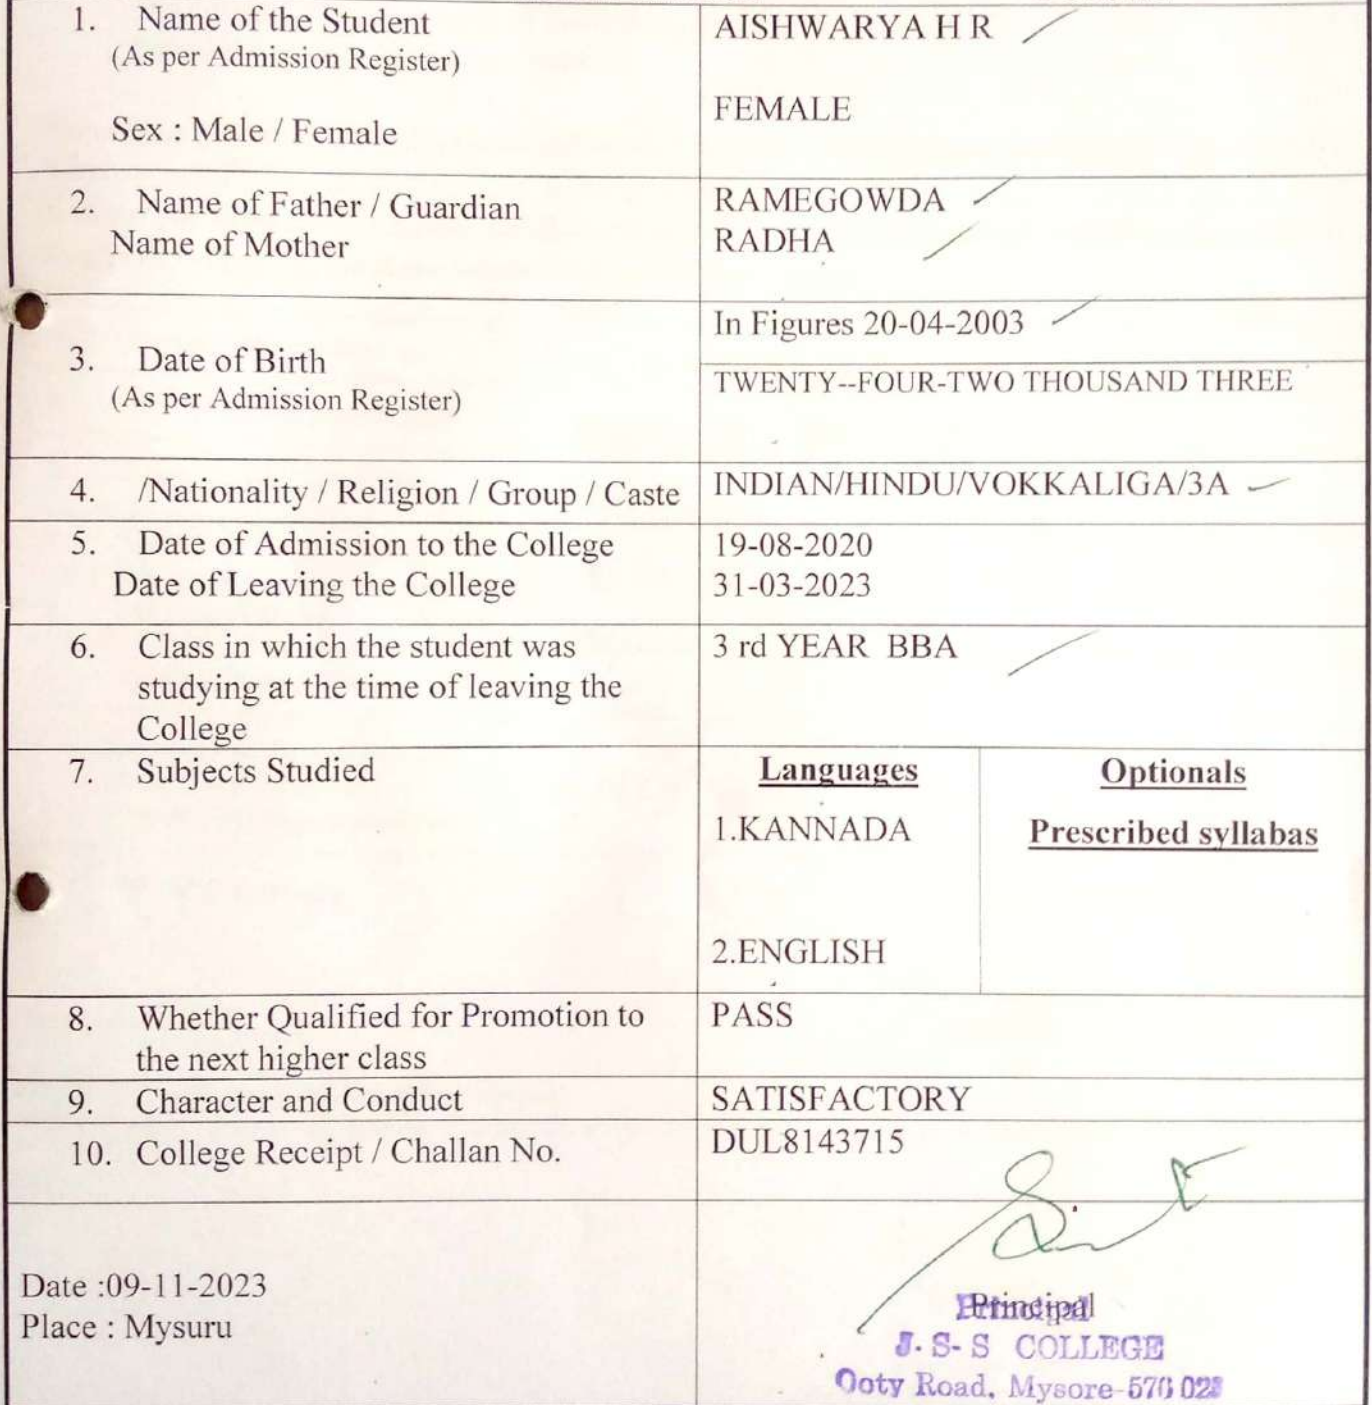 1. Name of the Student
(As per Admission Register)
AISHWARYA H R
Sex : Male / Female
FEMALE
2. Name of Father / Guardian
RAMEGOWDA
Name of Mother
RADHA
3. Date of Birth
(As per Admission Register)
In Figures 20-04-2003
TWENTY--FOUR-TWO THOUSAND THREE
4. /Nationality / Religion / Group / Caste
INDIAN/HINDU/VOKKALIGA/3A
5. Date of Admission to the College
19-08-2020
Date of Leaving the College
31-03-2023
6. Class in which the student was
studying at the time of leaving the
College
3 rd YEAR BBA
7. Subjects Studied
Languages
1.KANNADA
2.ENGLISH
Optionals
Prescribed syllabas
8. Whether Qualified for Promotion to
the next higher class
PASS
9. Character and Conduct
SATISFACTORY
10. College Receipt / Challan No.
DUL8143715
Date :09-11-2023
Place : Mysuru
Principal
J. S- S COLLEGE
Ooty Road, Mysore-570